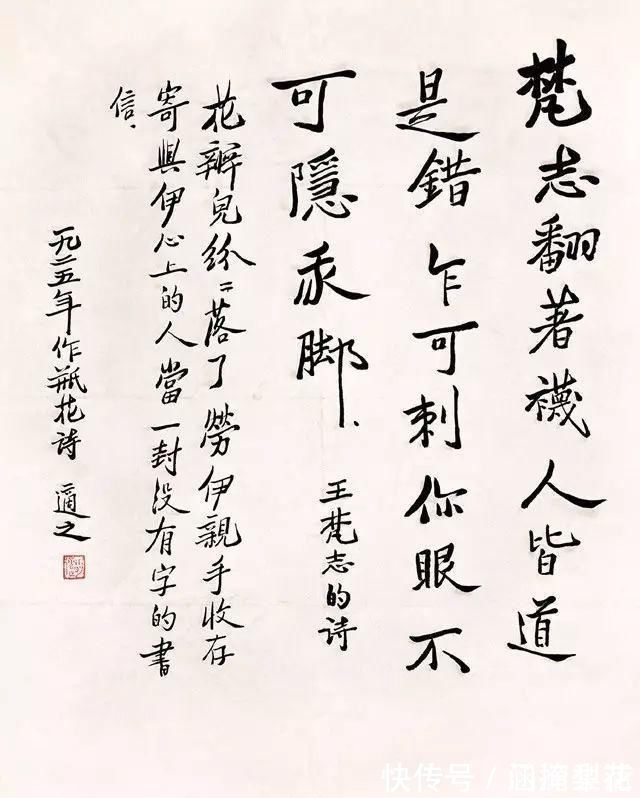 梵志翻著襪人皆道
是錯乍可刺你眼不
可隱我脚、
王梵志的詩
花瓣兒紛〻落了勞伊親手收存
寄與伊心上的人當一封没有字的書
信、
一九二五年作瓶花詩 適之
快传号／涵掩梨花